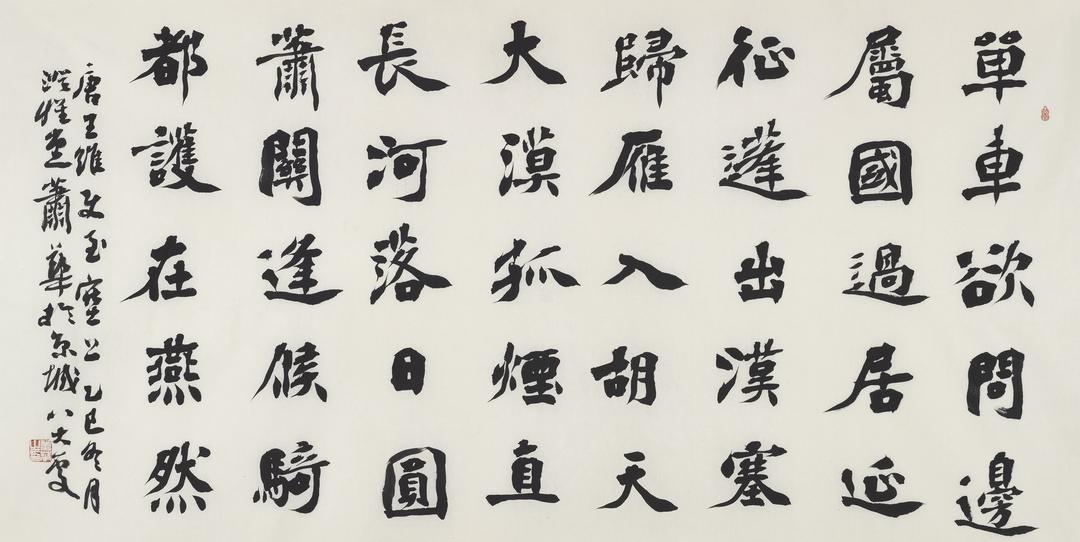 單車欲問邊
屬國過居延
征蓬出漢塞
歸雁入胡天
大漠孤煙直
長河落日圓
蕭關逢候騎
都護在燕然
唐王維使至塞上乙巳冬月
堂蕭華於京城八大處